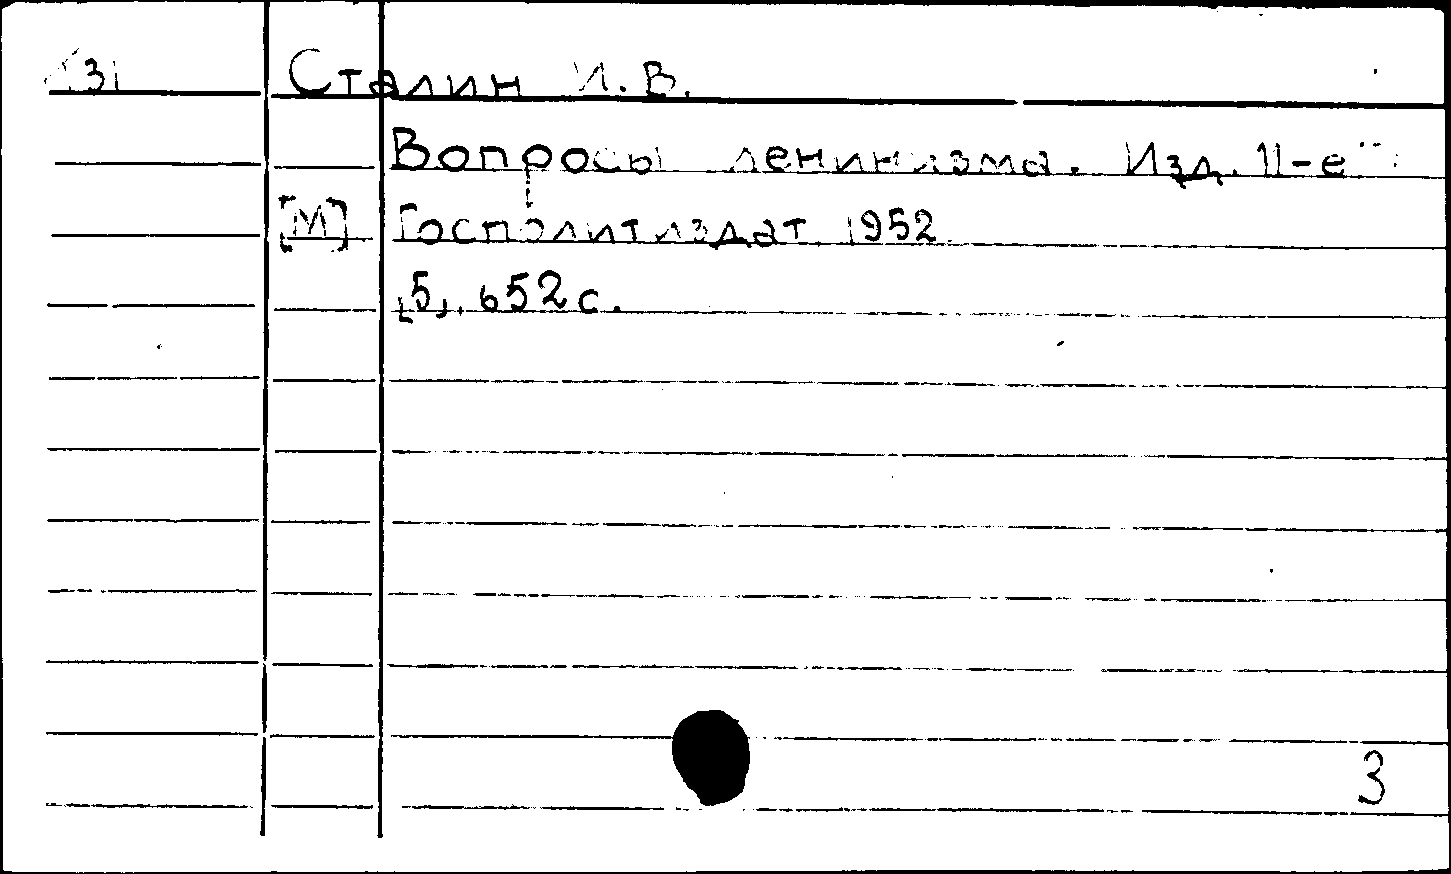 Сталин И. В.
Вопросы ленинизма. Изд. 11-е
[М] Госполитиздат. 1952.
[5], 652 с.
3